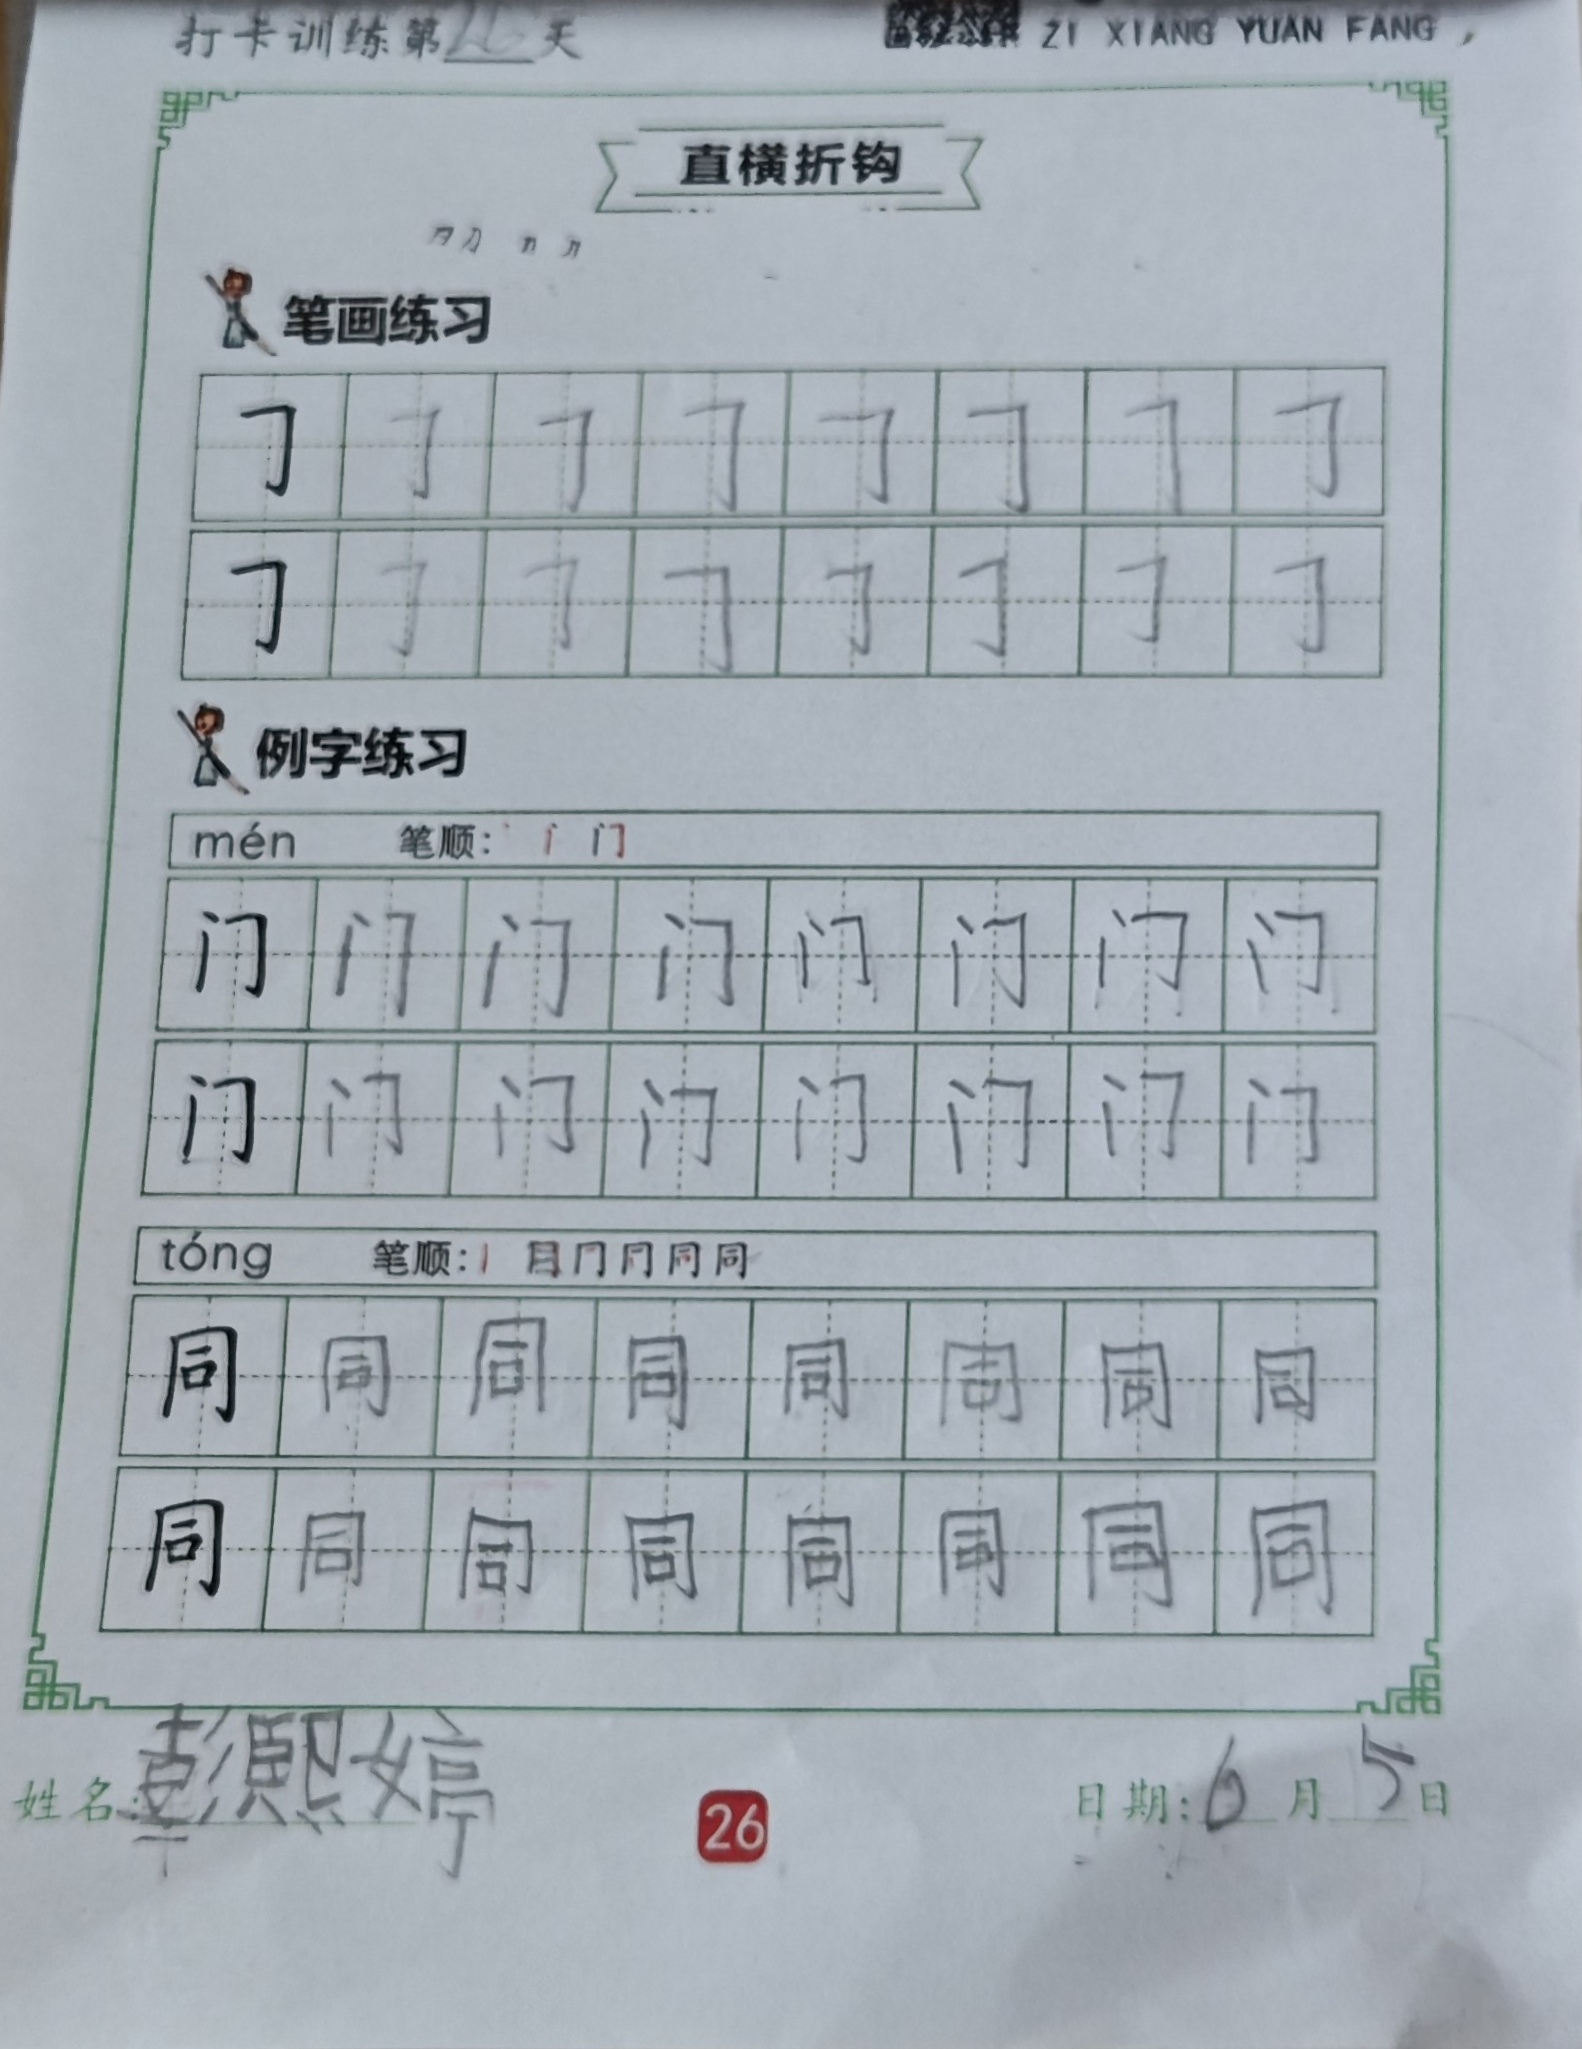 打卡训练第26天 ZI XIANG YUAN FANG
直横折钩
笔画练习
㇆ ㇆ ㇆ ㇆ ㇆ ㇆ ㇆ ㇆
㇆ ㇆ ㇆ ㇆ ㇆ ㇆ ㇆ ㇆
例字练习
mén 笔顺: 丶 门
门 门 门 门 门 门 门 门
门 门 门 门 门 门 门 门
tóng 笔顺: 丨 冂 同
同 同 同 同 同 同 同 同
同 同 同 同 同 同 同 同
姓名: 彭熙婷 26 日期: 6月5日